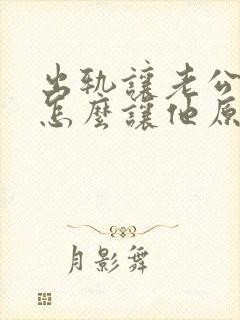 出軌讓老公
怎麼讓他原
月影舞